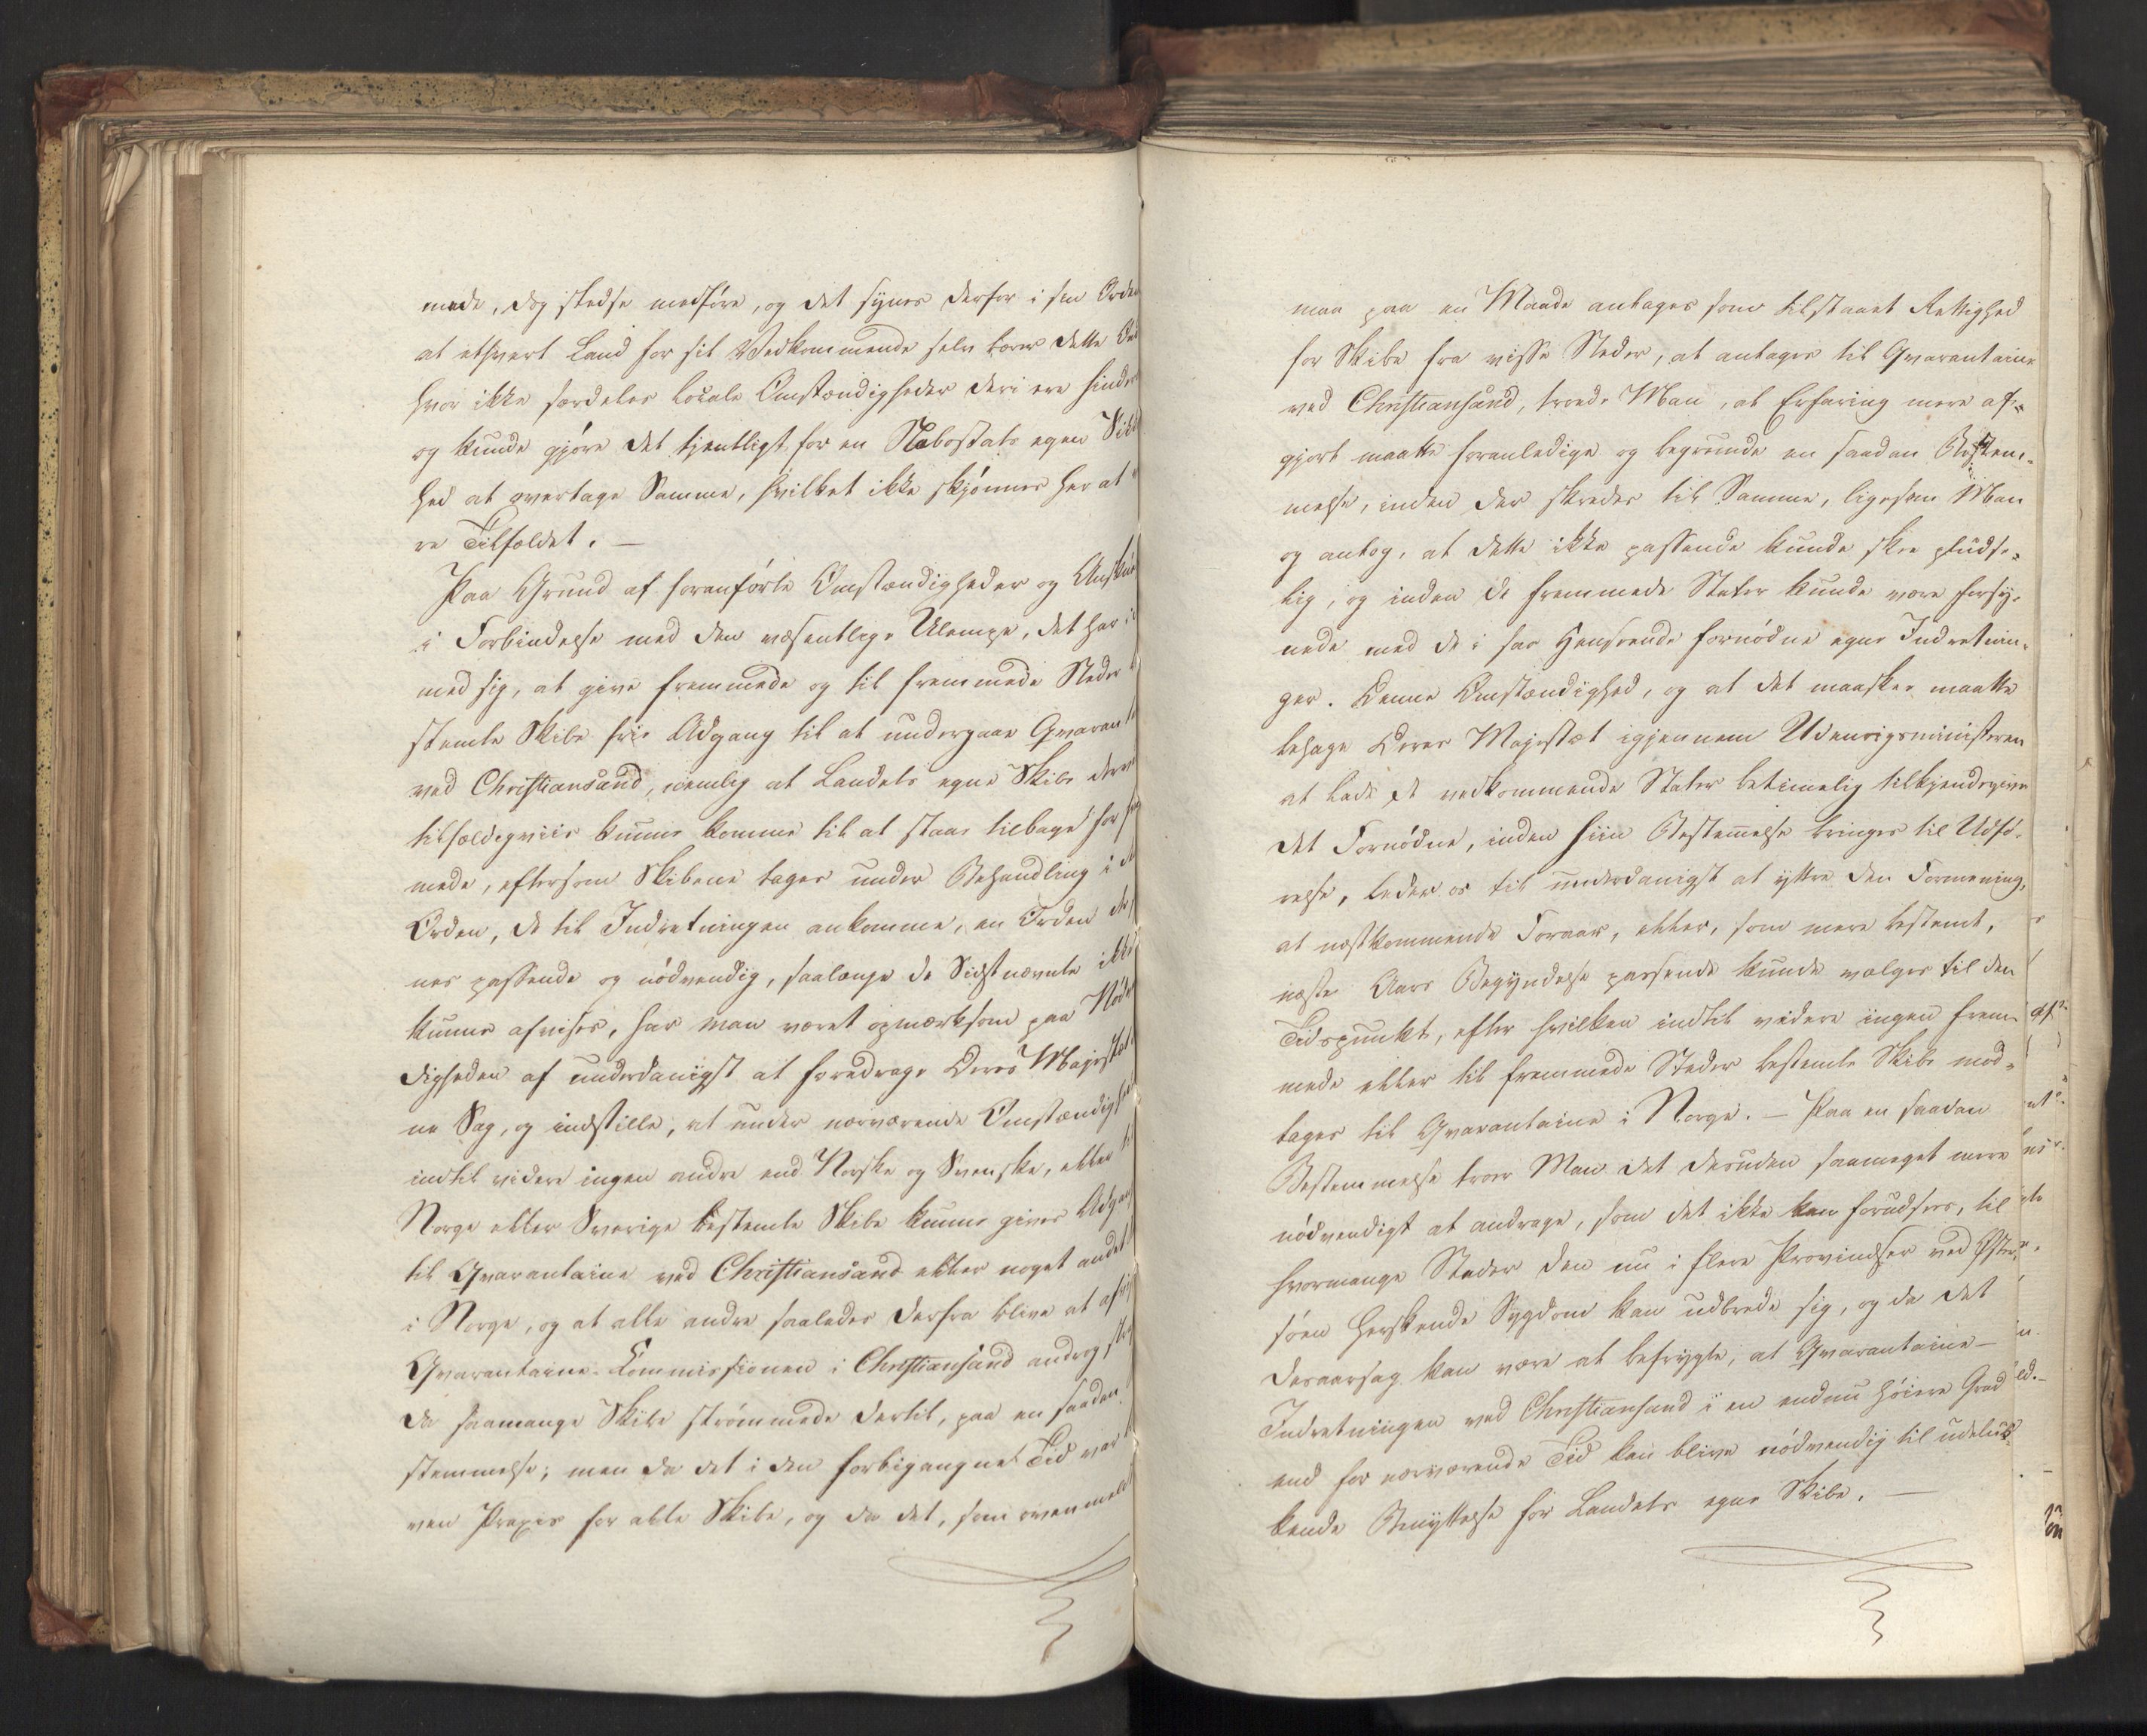 mede, dog stedse medføre, og det synes derfor i sin Orden
at ethvert Land for sit Vedkommende selv bærer dette
hvor ikke særdeles locale Omstændigheder deri ere
og kunde gjøre det tjenligt for en Nabostats egen
hed at overtage Samme, hvilket ikke skjønnes her at
re Tilfældet. —
Paa Grund af foranførte Omstændigheder og
i Forbindelse med den væsentlige Ulempe, det har
med sig, at give fremmede og til fremmede Steder
stemte Skibe frie Adgang til at undergaae
ved Christiansand, nemlig at Landets egne Skibe
tilfældigviis kunne komme til at staae tilbage for
mede, eftersom Skibene tages under Behandling i
Orden, de til Indretningen ankomme, en Orden
nes passende og nødvendig, saalænge de Sidstnævnte ikke
kunne afvises, har man været opmærksom paa
digheden af underdanigst at foredrage Deres
ne Sag, og indstille, at under nærværende
indtil videre ingen andre end Norske og Svenske, eller
Norge eller Sverige bestemte Skibe kunne gives
til Qvarantaine ved Christiansand eller noget andet
i Norge, og at alle andre saaledes derfra blive at
Qvarantaine-Commissionen i Christiansand androg
da saamange Skibe strømmede dertil, paa en saadan
stemmelse; men da det i den forbigangne Tid var
ven Praxis for alle Skibe, og da det, som
maa paa en Maade antages som tilstaaet Rettighed
for Skibe fra visse Steder, at antages til Qvarantaine
ved Christiansand, troede Man, at Erfaring mere af-
gjort maatte foranledige og begrunde en saadan Bestem-
melse, inden der skredes til Samme, ligesom Man
og antog, at dette ikke passende kunde skee pludse-
lig, og inden de fremmede Stater kunde være forsy-
nede med de i saa Henseende fornødne egne Indretnin-
ger. Denne Omstændighed, og at det maaskee maatte
behage Deres Majestæt igjennem Udenrigsministeren
at lade de vedkommende Stater betimelig tilkjendegive
det Fornødne, inden hiin Bestemmelse bringes til Udfø-
relse, leder os til underdanigst at yttre den Formening,
at næstkommende Foraar, eller, som mere bestemt,
næste Aars Begyndelse passende kunde vælges til den
Tidspunkt, efter hvilken indtil videre ingen frem-
mede eller til fremmede Steder bestemte Skibe mod-
tages til Qvarantaine i Norge. — Paa en saadan
Bestemmelse troer Man det desuden saameget mere
nødvendigt at andrage, som det ikke kan forudsees, til
hvormange Steder den nu i flere Provindser ved Øster-
søen herskende Sygdom kan udbrede sig, og da det
desaarsag kan være at befrygte, at Qvarantaine-
Indretningen ved Christiansand i en endnu høiere Grad
end for nærværende Tid kan blive nødvendig til udeluk-
kende Benyttelse for Landets egne Skibe. —